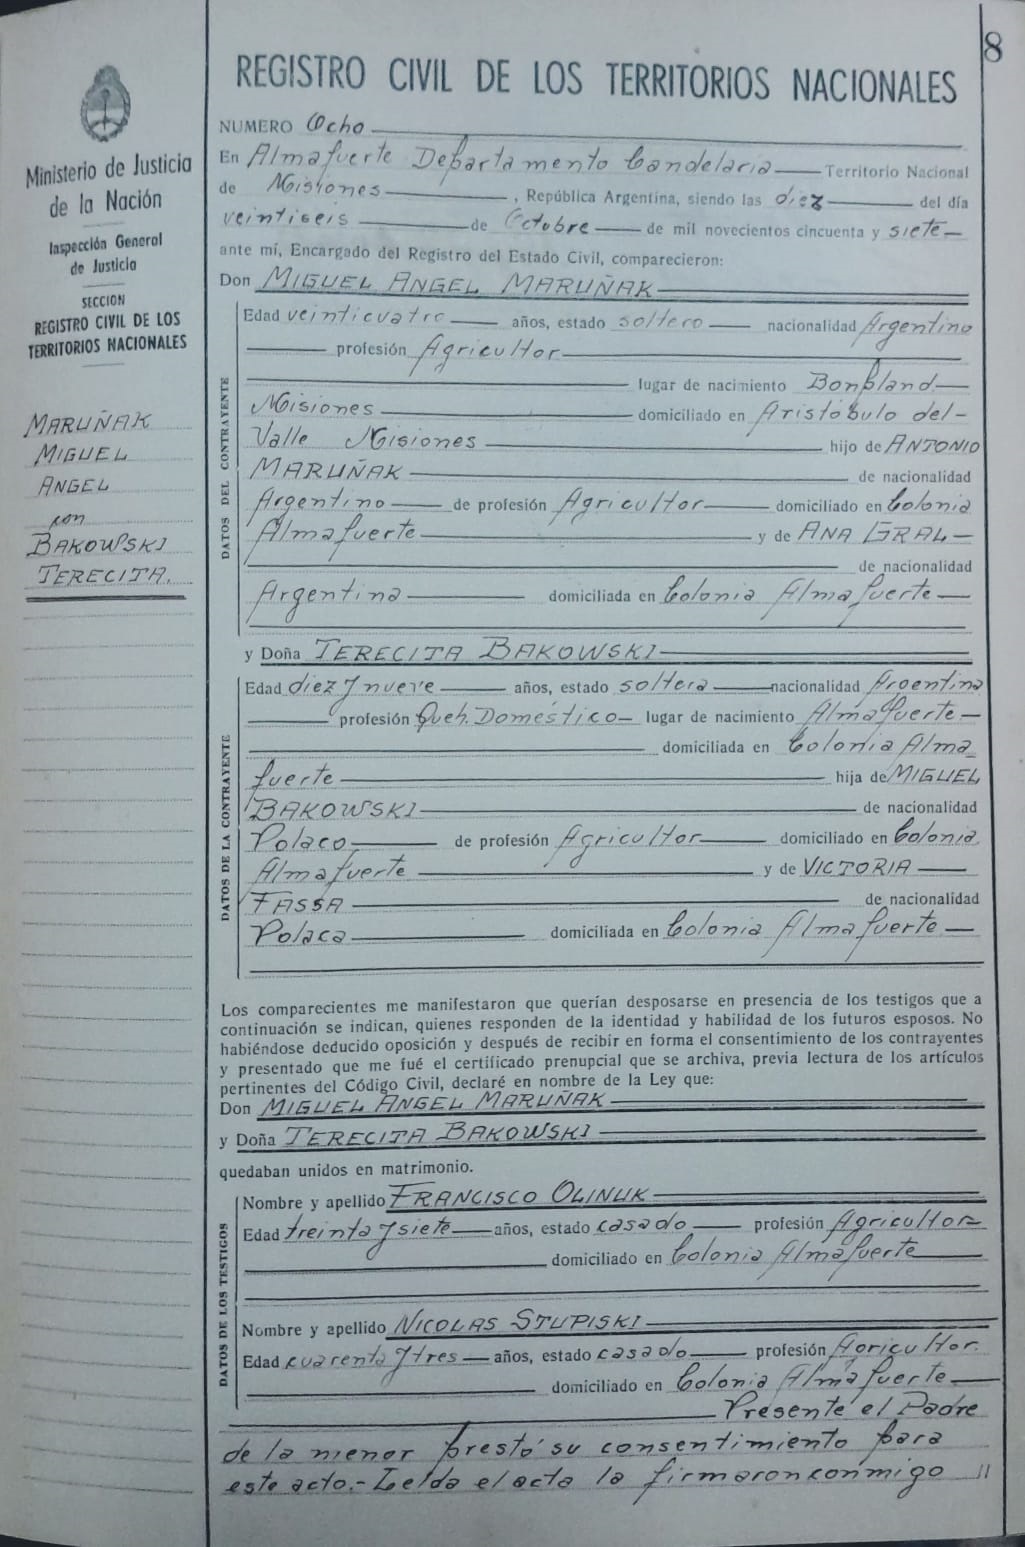 8
REGISTRO CIVIL DE LOS TERRITORIOS NACIONALES
Ministerio de Justicia
de la Nación
Inspección General
de Justicia
SECCION
REGISTRO CIVIL DE LOS
TERRITORIOS NACIONALES
MARUÑAK
MIGUEL
ANGEL
con
BAKOWSKI
TERECITA.
NUMERO Ocho
En Almafuerte Departamento Candelaria Territorio Nacional
de Misiones, República Argentina, siendo las diez del día
veintiseis de Octubre de mil novecientos cincuenta y siete
ante mí, Encargado del Registro del Estado Civil, comparecieron:
Don MIGUEL ANGEL MARUÑAK
DATOS DEL CONTRAYENTE
Edad veinticuatro años, estado soltero nacionalidad Argentino
profesión Agricultor
lugar de nacimiento Bonpland
Misiones domiciliado en Aristóbulo del-
Valle Misiones hijo de ANTONIO
MARUÑAK de nacionalidad
Argentino de profesión Agricultor domiciliado en Colonia
Almafuerte y de ANA GRAL
de nacionalidad
Argentina domiciliada en Colonia Almafuerte
y Doña TERECITA BAKOWSKI
DATOS DE LA CONTRAYENTE
Edad diez y nueve años, estado soltera nacionalidad Argentina
profesión Queh. Doméstico lugar de nacimiento Almafuerte
domiciliada en Colonia Alma
fuerte hija de MIGUEL
BAKOWSKI de nacionalidad
Polaco de profesión Agricultor domiciliado en Colonia
Almafuerte y de VICTORIA
FASSA de nacionalidad
Polaca domiciliada en Colonia Almafuerte
Los comparecientes me manifestaron que querían desposarse en presencia de los testigos que a
continuación se indican, quienes responden de la identidad y habilidad de los futuros esposos. No
habiéndose deducido oposición y después de recibir en forma el consentimiento de los contrayentes
y presentado que me fué el certificado prenupcial que se archiva, previa lectura de los artículos
pertinentes del Código Civil, declaré en nombre de la Ley que:
Don MIGUEL ANGEL MARUÑAK
y Doña TERECITA BAKOWSKI
quedaban unidos en matrimonio.
DATOS DE LOS TESTIGOS
Nombre y apellido FRANCISCO OLINUK
Edad treinta y siete años, estado casado profesión Agricultor
domiciliado en Colonia Almafuerte
Nombre y apellido NICOLAS STUPISKI
Edad cuarenta y tres años, estado casado profesión Agricultor.
domiciliado en Colonia Almafuerte
Presente el Padre
de la menor prestó su consentimiento para
este acto.- Leída el acta la firmaron conmigo //